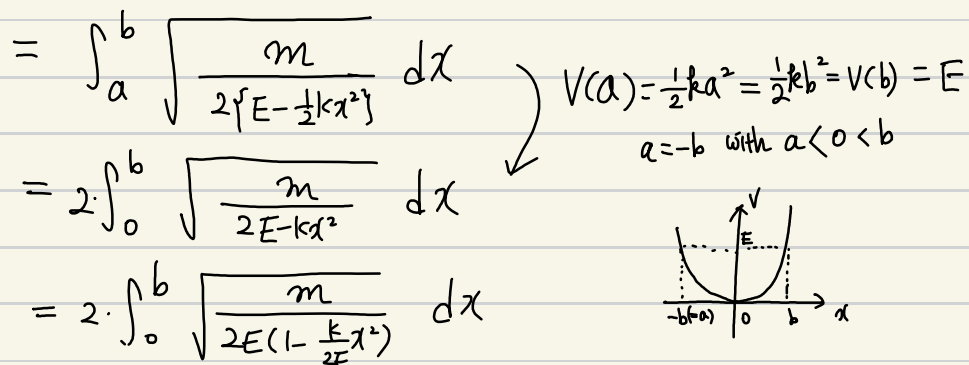 = ∫_a^b √(m / 2{E-½kx²}) dx
V(a)=½ka²=½kb²=V(b)=E
a=-b with a<0<b
= 2·∫_0^b √(m / 2E-kx²) dx
= 2·∫_0^b √(m / 2E(1-k/2E x²)) dx
V
E
-b(=a) 0 b x